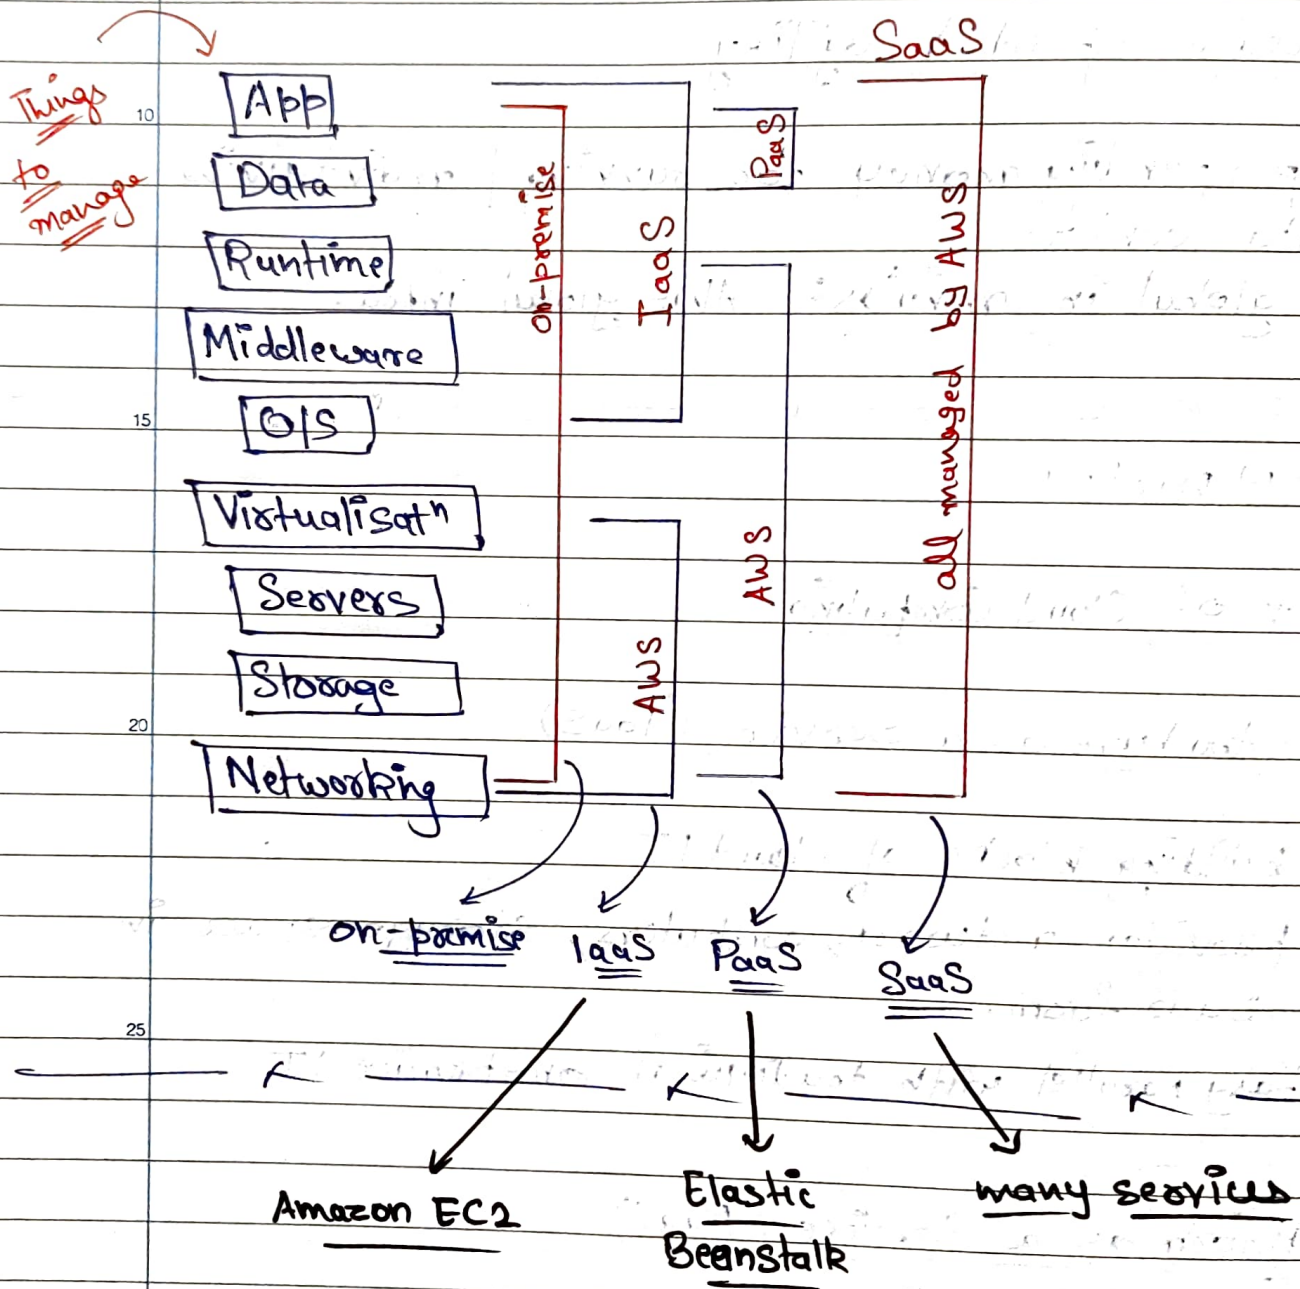 SaaS
Things
to
manage
10
App
Data
Runtime
Middleware
15
O/S
Virtualisatⁿ
Servers
Storage
20
Networking
on-premise
IaaS
AWS
PaaS
AWS
all managed by AWS
on-premise
IaaS
PaaS
SaaS
25
Amazon EC2
Elastic
Beanstalk
many services